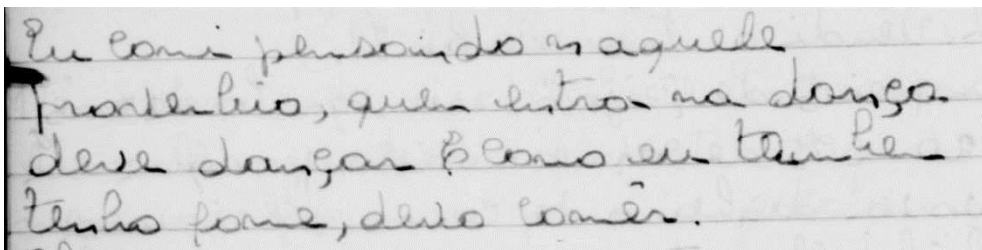 Eu comi pensando naquele
proverbio, quem entra na dança
deve dançar E como eu tambem
tenho fome, devo comêr.